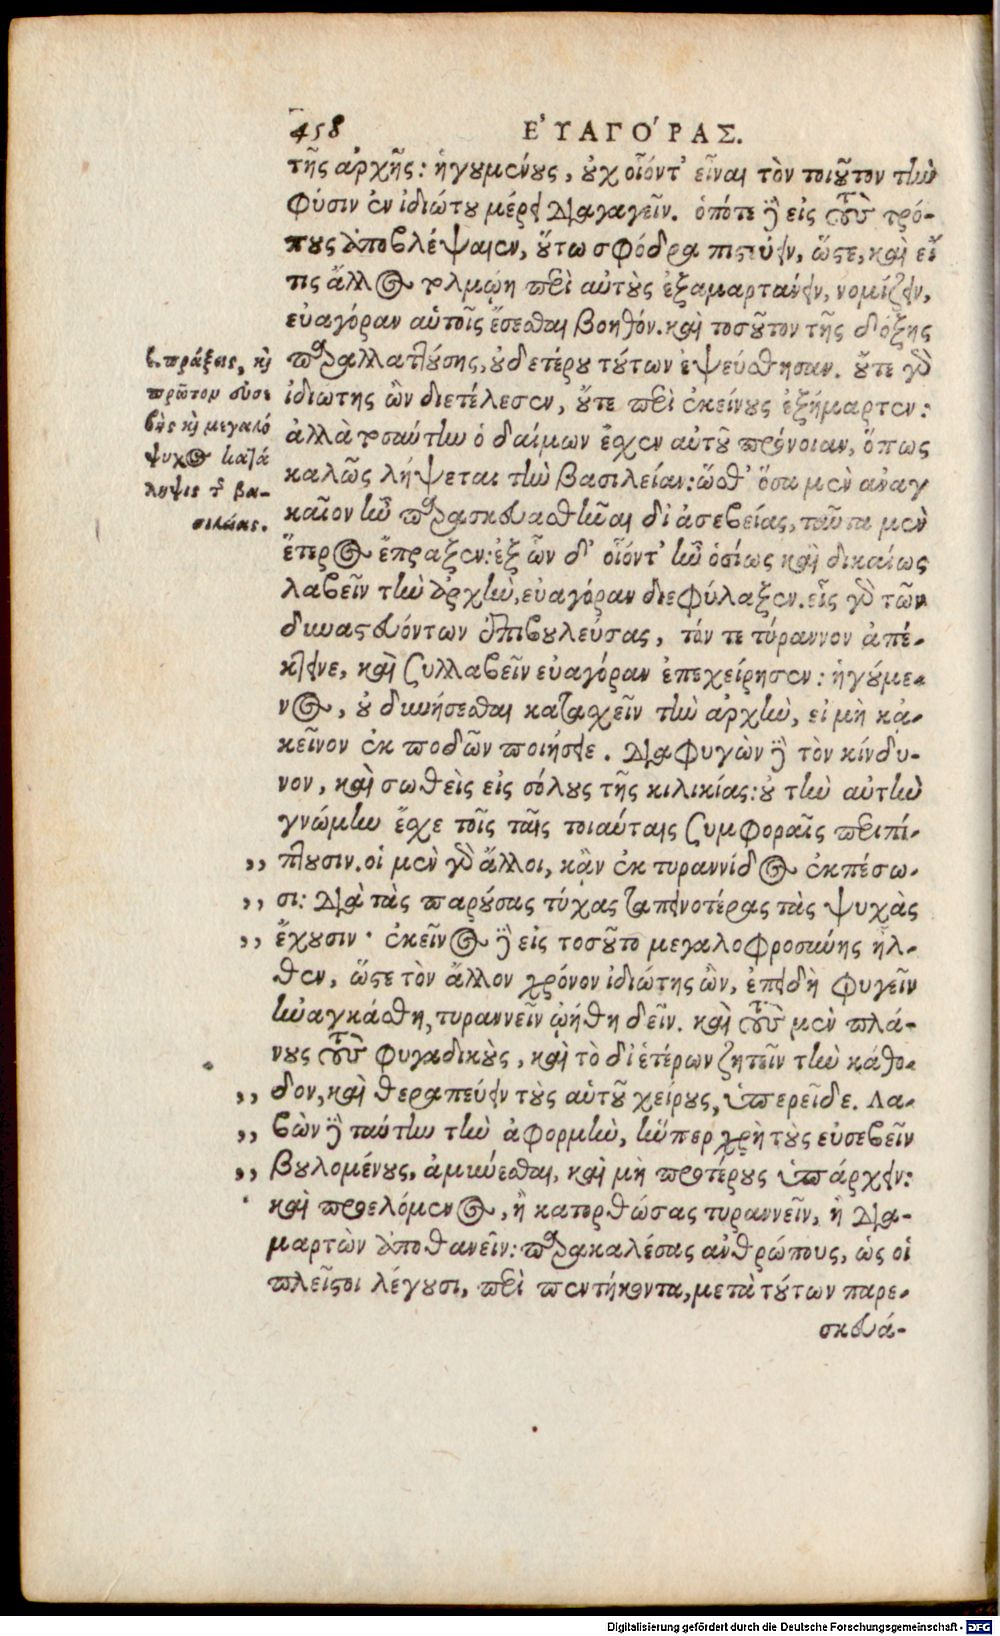 458 ΕὐΑΓΟ´ΡΑΣ.
τῆς ἀρχῆς: ἡγουμένους, οὐχ οἷόντ' εἶναι τὸν τοιοῦτον τὴν
φύσιν ἐν ἰδιώτου μέρει διαγαγεῖν. ὁπότε δὲ εἰς τοὺς τρό-
πους ἀποβλέψαιεν, οὕτω σφόδρα πιστεύειν, ὥστε, καὶ εἴ
τις ἄλλος τολμῴη περὶ αὐτοὺς ἐξαμαρτάνειν, νομίζειν,
εὐαγόραν αὑτοῖς ἔσεσθαι βοηθόν. καὶ τοσοῦτον τῆς δόξης
παραλλαττούσης, οὐδετέρου τούτων ἐψεύσθησαν. οὔτε γὰρ
ἰδιωτης ὢν διετέλεσεν, οὔτε περὶ ἐκείνους ἐξήμαρτεν:
ἀλλὰ τοσαύτην ὁ δαίμων ἔσχεν αὐτοῦ πρόνοιαν, ὅπως
καλῶς λήψεται τὴν βασιλείαν: ὥσθ' ὅσα μὲν ἀναγ
καῖον ἦν παρασκευασθῆναι δι' ἀσεβείας, ταῦτα μὲν
ἕτερος ἔπραξεν: ἐξ ὧν δ' οἷόντ' ἦν ὁσίως καὶ δικαίως
λαβεῖν τὴν ἀρχὴν, εὐαγόραν διεφύλαξεν. εἷς γὰρ τῶν
δυναστευόντων ἐπιβουλεύσας, τόν τε τύραννον ἀπέ-
κτεινε, καὶ συλλαβεῖν εὐαγόραν ἐπεχείρησεν: ἡγούμε-
νος, οὐ δυνήσεσθαι κατασχεῖν τὴν ἀρχὴν, εἰ μὴ κἀ-
κεῖνον ἐκ ποδῶν ποιήσειε. διαφυγὼν δὲ τὸν κίνδυ-
νον, καὶ σωθεὶς εἰς σόλους τῆς κιλικίας: οὐ τὴν αὐτὴν
γνώμην ἔσχε τοῖς ταῖς τοιαύταις συμφοραῖς περιπί-
,, πτουσιν. οἱ μὲν γὰρ ἄλλοι, κἂν ἐκ τυραννίδος ἐκπέσω-
,, σι: διὰ τὰς παρούσας τύχας ταπεινοτέρας τὰς ψυχὰς
,, ἔχουσιν· ἐκεῖνος δὲ εἰς τοσοῦτο μεγαλοφροσύνης ἦλ-
θεν, ὥστε τὸν ἄλλον χρόνον ἰδιώτης ὢν, ἐπειδὴ φυγεῖν
ἠναγκάσθη, τυραννεῖν ᾠήθη δεῖν. καὶ τοὺς μὲν πλά-
νους τοὺς φυγαδικοὺς, καὶ τὸ δι' ἑτέρων ζητεῖν τὴν κάθο-
,, δον, καὶ θεραπεύειν τοὺς αὑτοῦ χείρους, ὑπερεῖδε. Λα-
,, βὼν δὲ ταύτην τὴν ἀφορμὴν, ἥνπερ χρὴ τοὺς εὐσεβεῖν
,, βουλομένους, ἀμύνεσθαι, καὶ μὴ προτέρους ὑπάρχειν:
καὶ προελόμενος, ἢ κατορθώσας τυραννεῖν, ἢ δια-
μαρτὼν ἀποθανεῖν: παρακαλέσας ἀνθρώπους, ὡς οἱ
πλεῖστοι λέγουσι, περὶ πεντήκοντα, μετὰ τούτων παρε-
σκευά-
ϛ. πράξεις, καὶ
πρῶτον εὐσε
βὴς καὶ μεγαλό
ψυχος κατά
ληψις τῆς βα-
σιλείας.
Digitalisierung gefördert durch die Deutsche Forschungsgemeinschaft - DFG